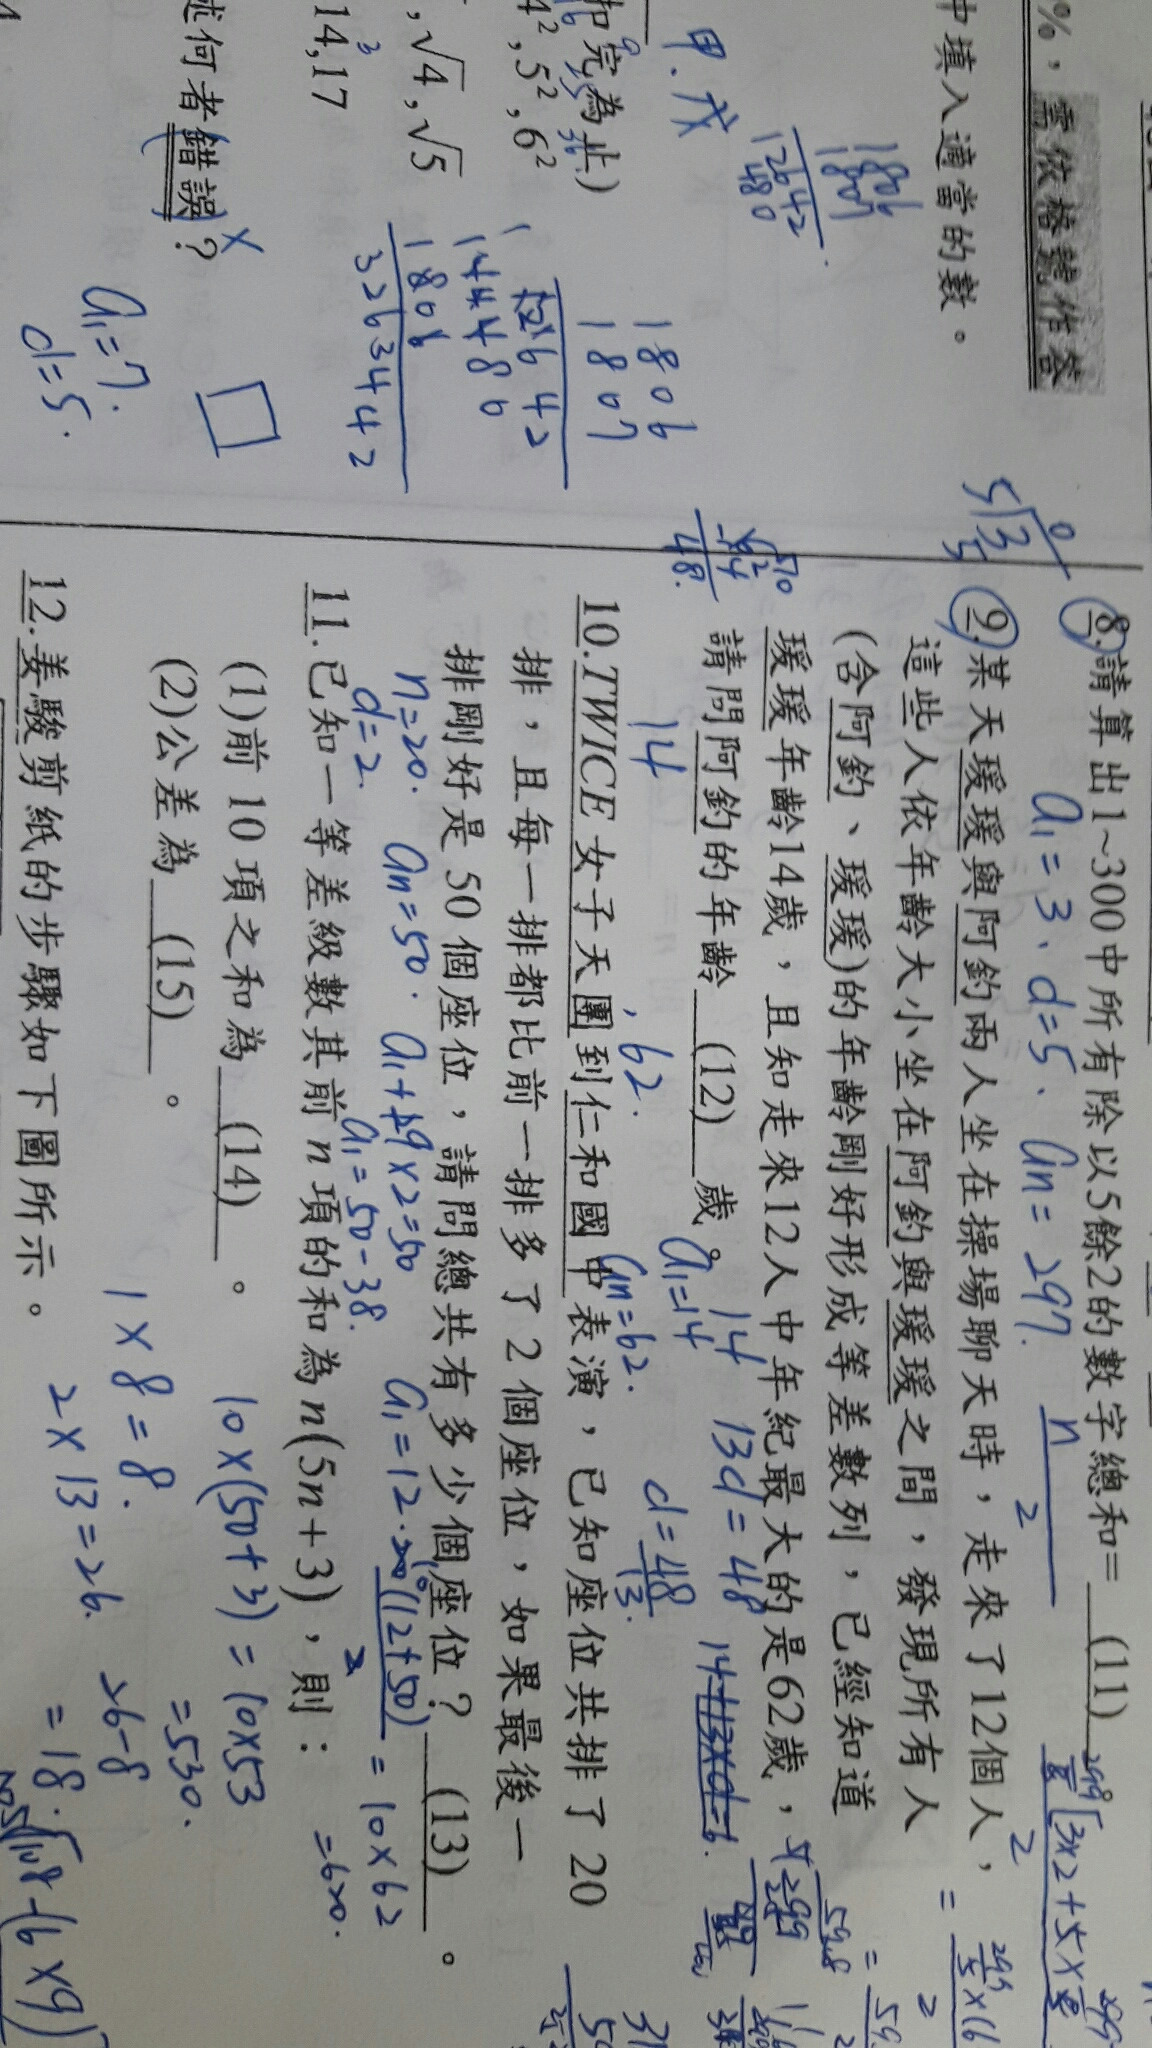 %，需依格號作答
中填入適當的數。
1806
1807
12642
480
甲.戊
扣完為止)
4²,5²,6²
,√4,√5
14,17
述何者錯誤？
a₁=7.
d=5.
1806
1807
12642
14448
1806
3263442
8.請算出1~300中所有除以5餘2的數字總和=　(11)
a₁=3、d=5、an=297.
9.某天瑗瑗與阿鈞兩人坐在操場聊天時，走來了12個人，
這些人依年齡大小坐在阿鈞與瑗瑗之間，發現所有人
(含阿鈞、瑗瑗)的年齡剛好形成等差數列，已經知道
瑗瑗年齡14歲，且知走來12人中年紀最大的是62歲，
請問阿鈞的年齡　(12)　歲。
14　13d=48
14　62.　a₁=14　an=62.　d=48/13.
10.TWICE女子天團到仁和國中表演，已知座位共排了20
排，且每一排都比前一排多了2個座位，如果最後一
排剛好是50個座位，請問總共有多少個座位？　(13)　。
n=20.　an=50.　a₁+19×2=50　a₁=12.　(12+50)/2　=10×62
d=2.　a₁=50-38.　=620.
11.已知一等差級數其前n項的和為n(5n+3)，則：
(1)前10項之和為　(14)　。
10×(50+3)=10×53
=530.
(2)公差為　(15)　。
1×8=8.
2×13=26.
26-8
=18.
12.姜駿剪紙的步驟如下圖所示。